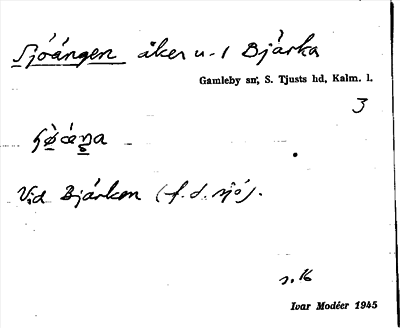 Sjöängen åker u. 1 Bjärka
Gamleby sn, S. Tjusts hd, Kalm. l.
3
Vid Bjärken (f. d. sjö).
s. 16
Ivar Modéer 1945